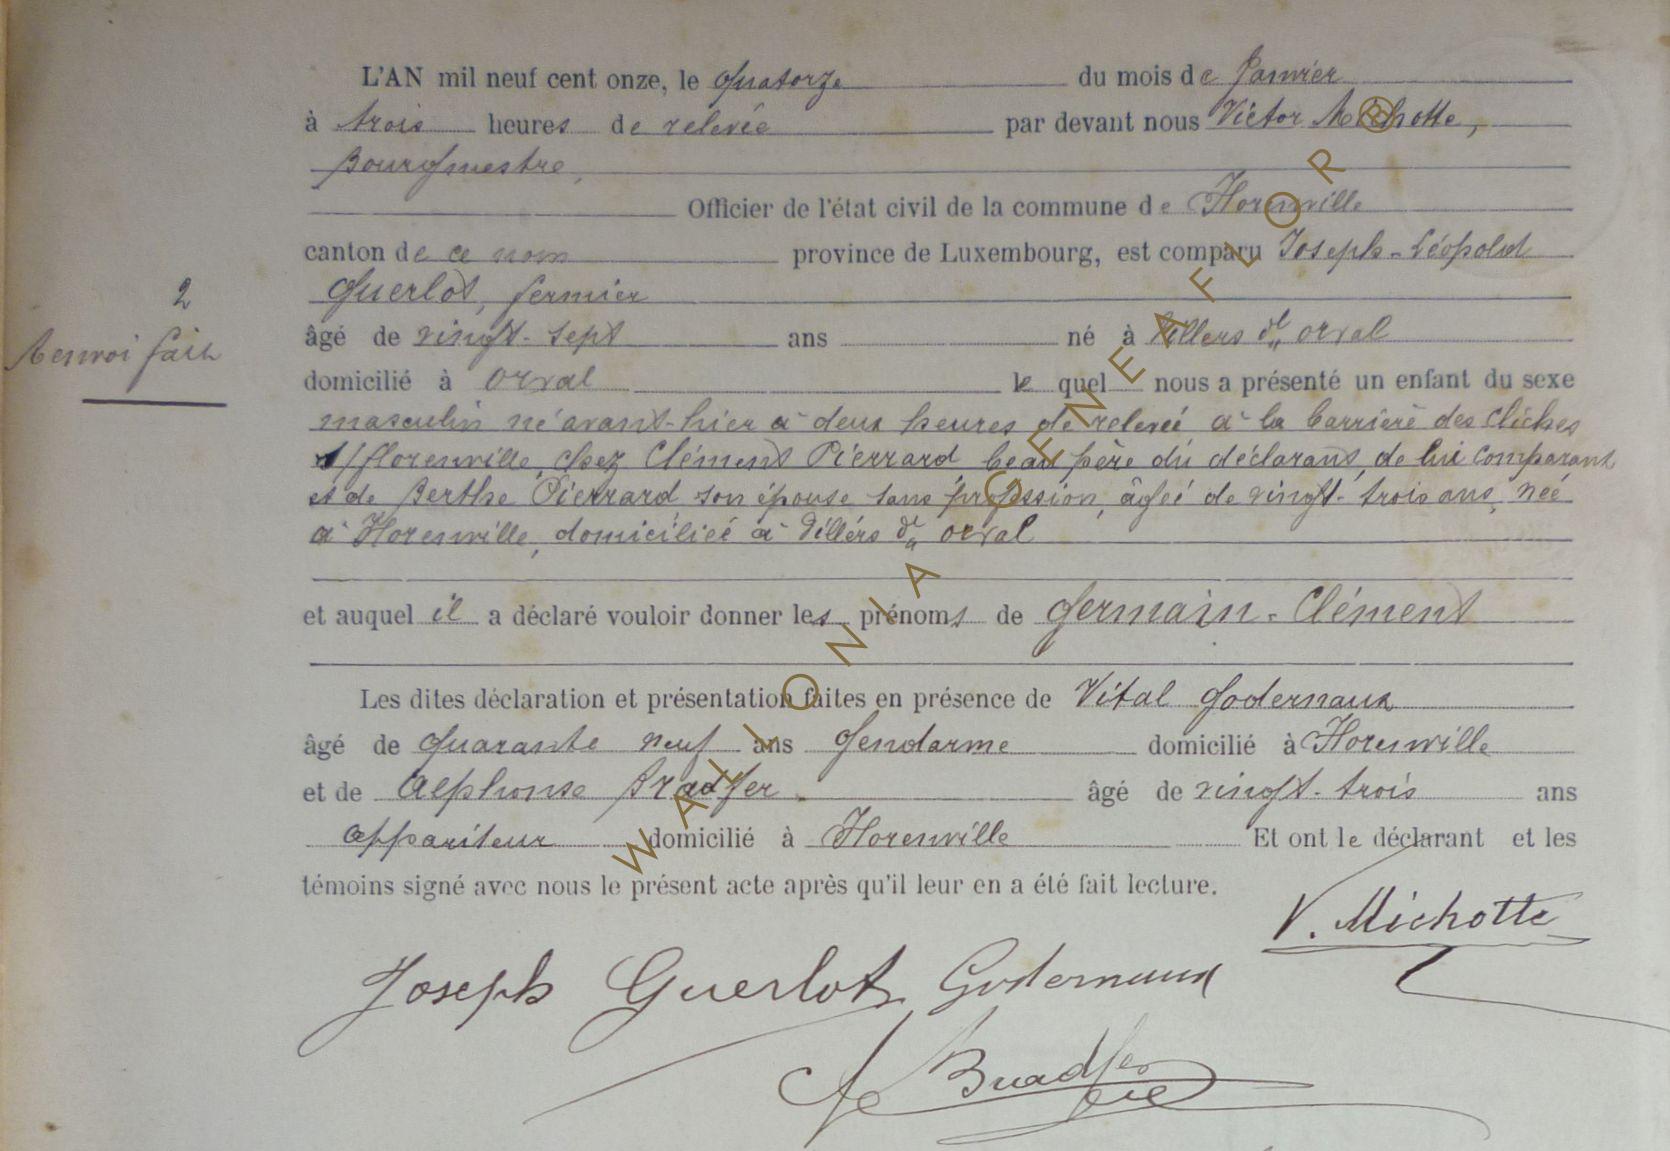 L'AN mil neuf cent onze, le quatorze du mois de Janvier
à trois heures de relevée par devant nous Victor Michotte,
Bourgmestre,
Officier de l'état civil de la commune de Florenville
canton de ce nom province de Luxembourg, est comparu Joseph-Léopold
Guerlot, fermier
2
âgé de vingt-sept ans né à Villers dt orval
Renvoi fait
domicilié à orval lequel nous a présenté un enfant du sexe
masculin né avant-hier à deux heures de relevée à la barrière des
s/florenville, chez Clément Pierrard beau père du déclarant, de lui comparant
et de Berthe Pierrard son épouse sans profession, âgée de vingt-trois ans, née
à Florenville, domiciliée à Villers dt orval
et auquel il a déclaré vouloir donner les prénoms de Germain-Clément
Les dites déclaration et présentation faites en présence de Vital Godernaux
âgé de quarante neuf ans Gendarme domicilié à Florenville
et de Alphonse Bradfer âgé de vingt-trois ans
appariteur domicilié à Florenville Et ont le déclarant et les
témoins signé avec nous le présent acte après qu'il leur en a été fait lecture.
V. Michotte
Joseph Guerlot Godernaux
Bradfer
WALLONIA GENEAFLOR ®